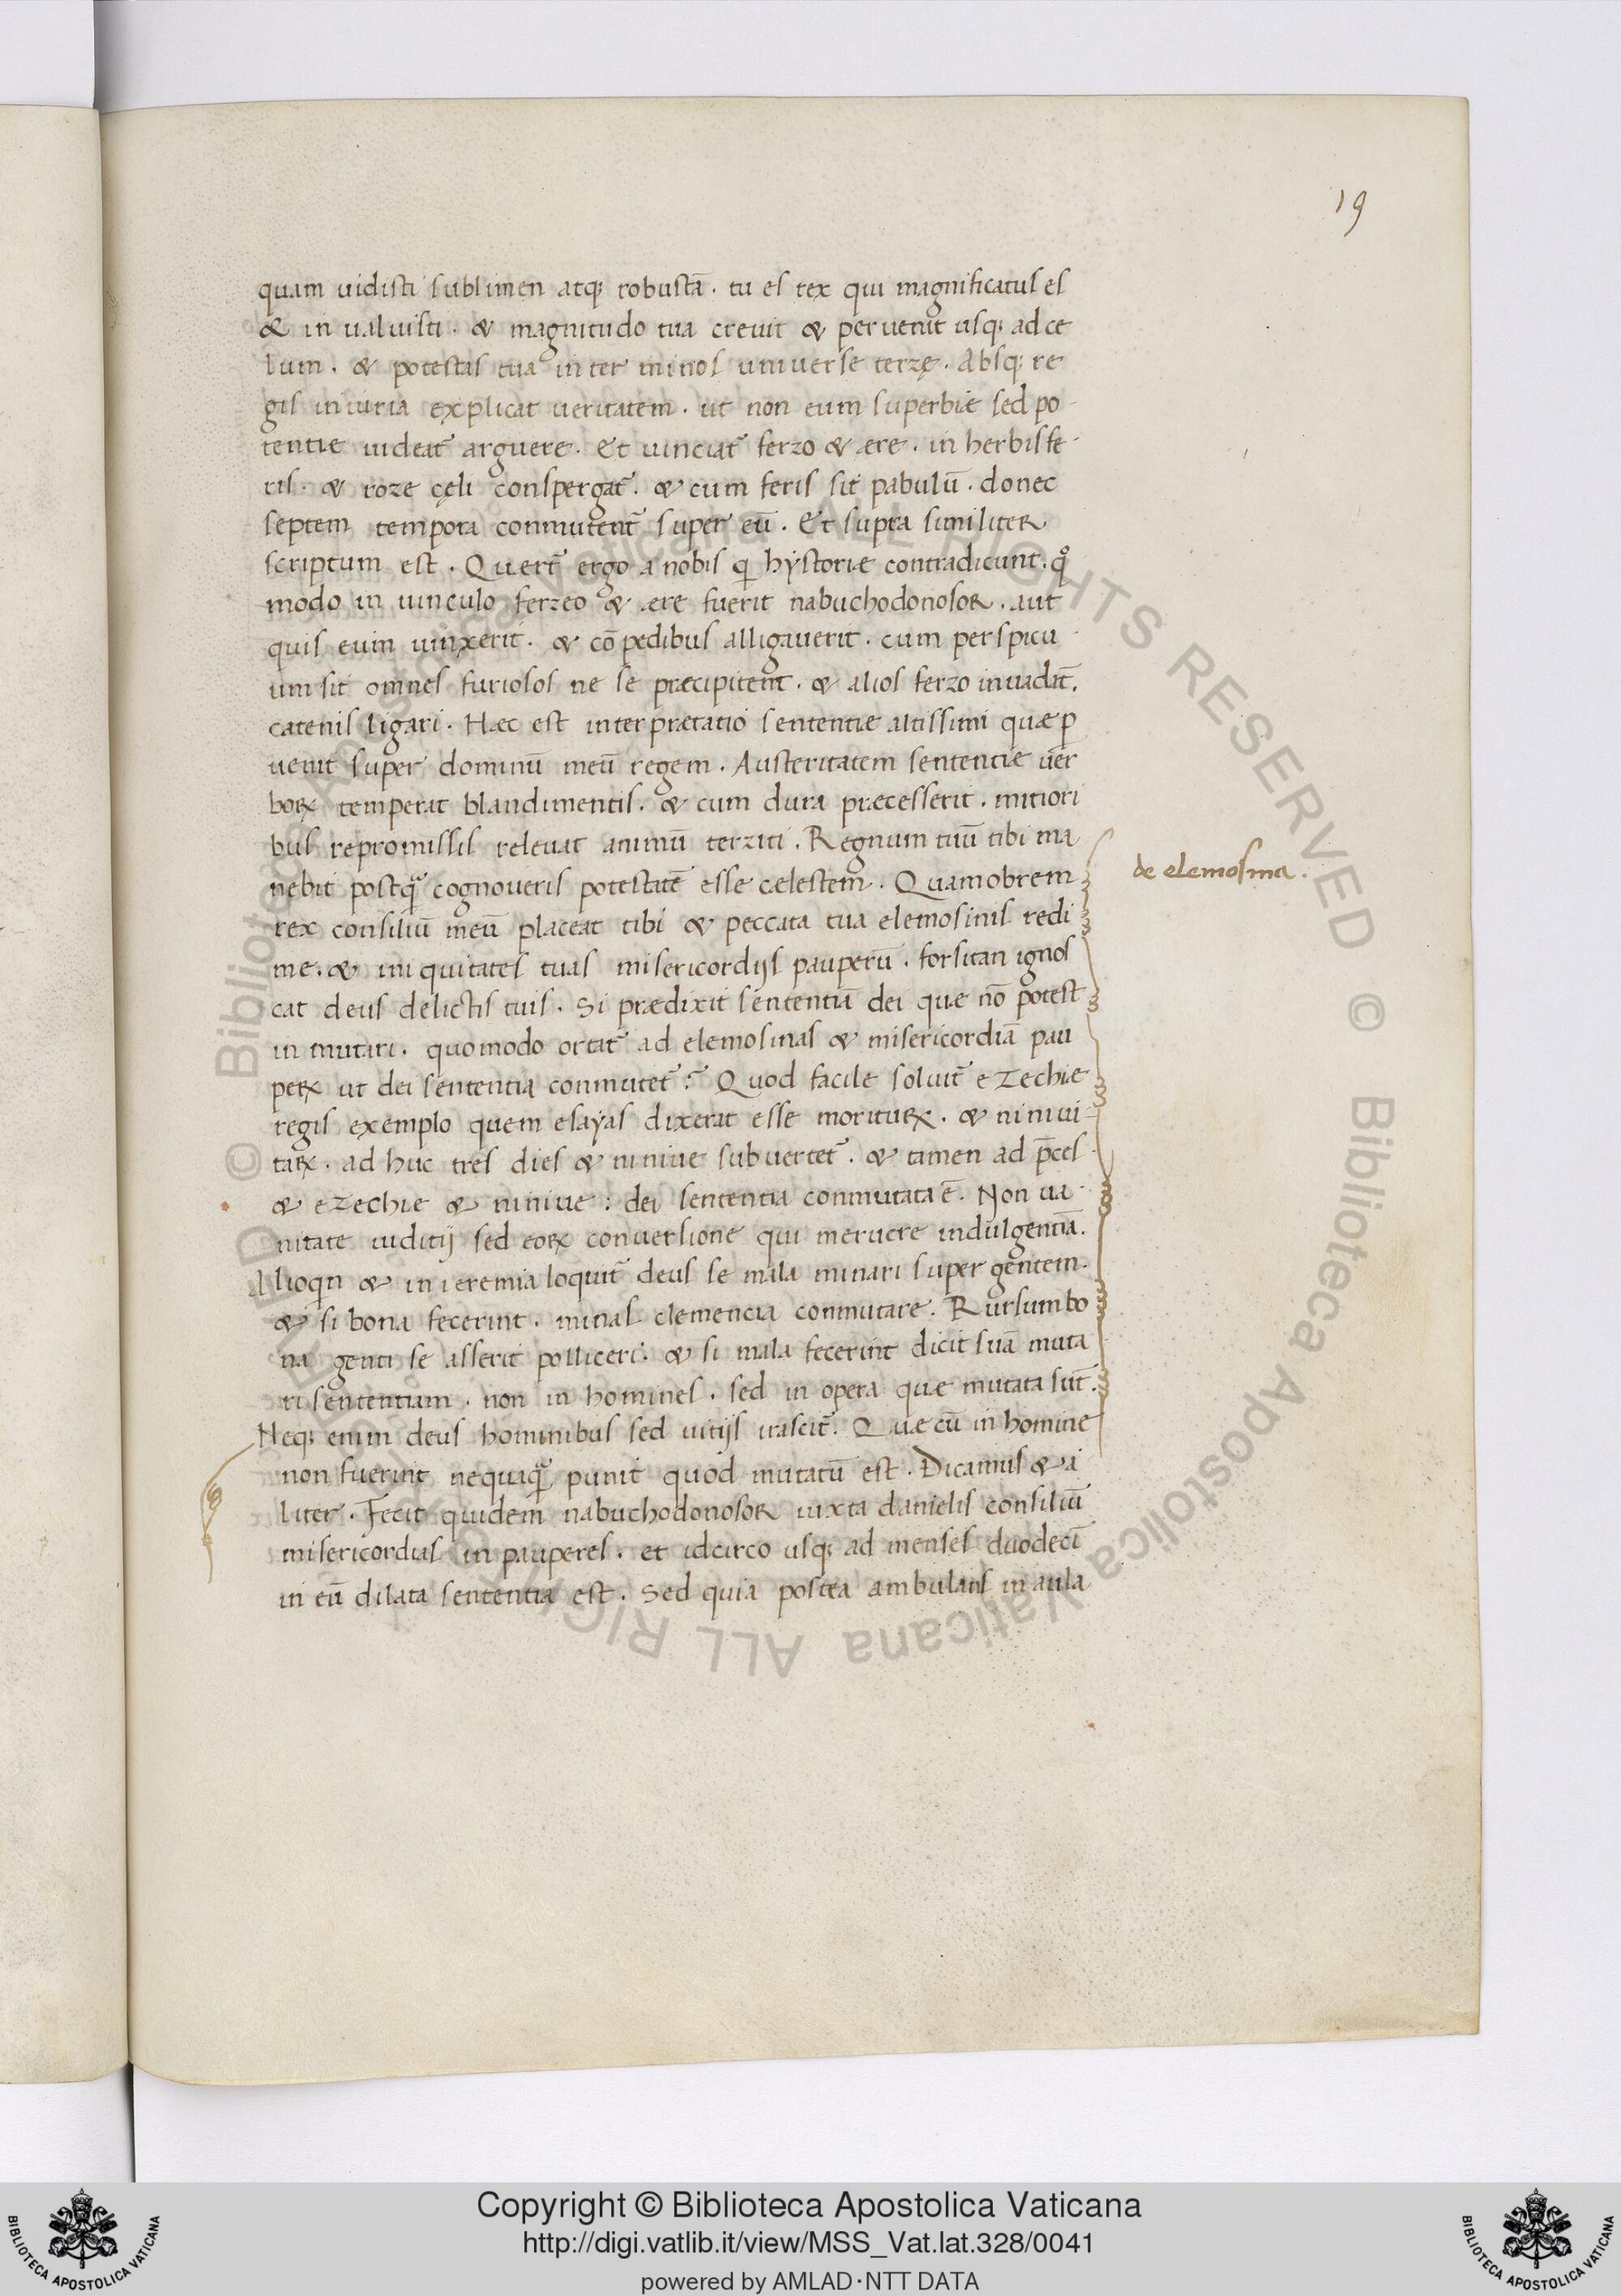 19
quam uidisti sublimen atq; robustā. tu es rex qui magnificatus es
& in ualuisti. & magnitudo tua creuit & peruenit usq; ad ce
lum. & potestas tua in terminos uniuerse terrę. Absq; re
gis iniuria explicat ueritatem. ut non eum superbie sed po
tentie uideat̄ arguere. Et uinciat̄ ferro & ære. in herbis fe
ris. & rore cęli conspergat̄. & cum feris sit pabulū. donec
septem tempora conmutent̄ super eū. Et supra similiter
scriptum est. Quert̄ ergo a nobis qi hystoriæ contradicunt. qº
modo in uinculo ferreo & ære fuerit nabuchodonosor. aut
quis eum uinxerit. & cōpedibus alligauerit. cum perspicu
um sit omnes furiosos ne se præcipitent. & alios ferro inuadāt.
catenis ligari. Hæc est interprætatio sententiæ altissimi quæ ꝑ
uenit super dominū meū regem. Austeritatem sententie uer
boꝝ temperat blandimentis. & cum dura præcesserit. mitiori
bus repromissis releuat animū territi. Regnum tuū tibi ma
nebit postqᷓ cognoueris potestatē esse cælestem. Quamobrem
rex consiliū meū placeat tibi & peccata tua elemosinis redi
me. & iniquitates tuas misericordijs pauperū. forsitan ignos
cat deus delictis tuis. Si prædixit sententiā dei quæ nō potest
inmutari. quomodo ortat̄ ad elemosinas & misericordiā pau
peꝝ ut dei sententia conmutet̄? Quod facile soluit̄ ezechie
regis exemplo quem esayas dixerat esse morituꝝ. & niniui
taꝝ. ad huc tres dies & niniue subuertet̄. & tamen ad p̄ces
& ezechie & niniue: dei sententia conmutata ē. Non ua
nitate iuditij sed eoꝝ conuersione qui meruere indulgentiā.
Alioqin & in ieremia loquit̄ deus se mala minari super gentem.
& si bona fecerint. minas clemencia conmutare. Rursum bo
na genti se asserit polliceri. & si mala fecerint dicit suā muta
ri sententiam. non in homines. sed in opera quæ mutata sūt.
Neq; enim deus hominibus sed uitijs irascit̄. Quæ cū in homine
non fuerint nequaqᷓ punit quod mutatū est. Dicamus & a
liter. Fecit quidem nabuchodonosor iuxta danielis consiliū
misericordias in pauperes. et idcirco usq; ad menses duodecī
in eū dilata sententia est. Sed quia postea ambulans in aula
de elemosina.
Copyright © Biblioteca Apostolica Vaticana
http://digi.vatlib.it/view/MSS_Vat.lat.328/0041
powered by AMLAD·NTT DATA
BIBLIOTECA APOSTOLICA VATICANA
BIBLIOTECA APOSTOLICA VATICANA
© Biblioteca Apostolica Vaticana ALL RIGHTS RESERVED © Biblioteca Apostolica Vaticana ALL RIGHTS RESERVED